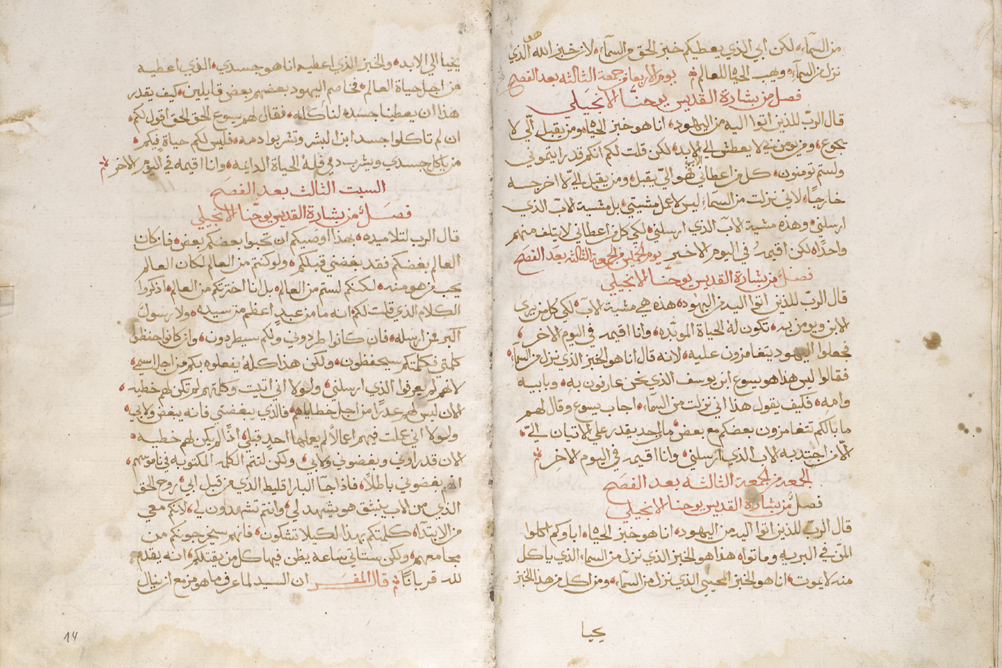 من السماء لكن ابي الذي يعطيكم خبز الحق من السماء لان خبز الله الذي
هو
نزل من السماء وهب الحياة للعالم يوم الاربعا من جمعة الثالثة بعد الفصح
فصل من بشارة القديس يوحنا الانجيلي
قال الرب للذين اتوا اليه من اليهود انا هو خبز الحياة ومن يقبل الي لا
يجوع ومن يومن بي لا يعطش الي الابد لكن قلت لكم انكم قد رايتموني
ولستم تومنون كل من اعطاني الاب فهو الي يقبل ومن يقبل الي لا اخرجه
خارجا لاني نزلت من السماء ليس لاعمل مشيتي بل مشية الاب الذي
ارسلني وهذه مشية الاب الذي ارسلني لكي كل من اعطاني لا يتلف منهم
واحدا لكن اقيمه في اليوم الاخير يوم الخميس من الجمعة الثالثة بعد الفصح
فصل من بشارة القديس يوحنا الانجيلي
قال الرب للذين اتوا اليه من اليهود هذه هي مشية الاب لكي كل من يري
الابن ويومن به تكون له الحياة الموبده وانا اقيمه في اليوم الاخر
فجعلوا اليهود يتغامزون عليه لانه قال انا هو الخبز الذي نزل من السما
فقالوا ليس هذا هو يسوع ابن يوسف الذي نحن عارفون به وبابيه
وامه فكيف يقول هذا اني نزلت من السماء اجاب يسوع وقال لهم
ما بالكم تتغامزون بعضكم مع بعض ما احد يقدر علي الاتيان الي
الا من اجتذبه الاب الذي ارسلني وانا اقيمه في اليوم الاخر
الجمعه من الجمعه الثالثه بعد الفصح
فصل من بشارة القديس يوحنا الانجيلي
قال الرب للذين اتوا اليه من اليهود انا هو خبز الحياة اباوكم اكلوا
المن في البريه وماتوا هذا هو الخبز الذي نزل من السماء الذي ياكل
منه لا يموت انا هو الخبز المحيي الذي نزل من السماء ومن اكل من هذا الخبز
يحيا
يحيا الي الابد والخبز الذي اعطيه انا هو جسدي الذي اعطيه
من اجل حياة العالم فخاصم اليهود بعضهم بعض قايلين كيف يقدر
هذا ان يعطينا جسده لناكله فقال لهم يسوع الحق الحق اقول لكم
ان لم تاكلوا جسد ابن البشر وتشربوا دمه فليس لكم حياة فيكم
من ياكل جسدي ويشرب دمي فله الحياة الدايمه وانا اقيمه في اليوم الاخر
السبت الثالث بعد الفصح
فصل من بشارة القديس يوحنا الانجيلي
قال الرب لتلاميذه بهذا اوصيكم ان تحبوا بعضكم بعض فان كان
العالم يبغضكم فقد بغضني قبلكم ولو كنتم من العالم لكان العالم
يحب من هو منه لكنكم لستم من العالم بل انا اخترتكم من العالم اذكروا
الكلام الذي قلت لكم انه ما من عبد اعظم من سيده ولا رسول
اكبر من ارسله فان كانوا طردوني ولكم سيطردون وان كانوا حفظوا
كلمتي فكلمتكم سيحفظون ولكن هذا كله يفعلوه بكم من اجل اسمي
لانهم لم يعرفوا الذي ارسلني ولولا اني اتيت وكلمتهم لم تكن لهم خطيه
الان ليس لهم عذرا من اجل خطاياهم فالذي يبغضني فانه يبغض ولابي
ولولا اني عملت فيهم اعمالا لم يعملها احد قبلي اذا لم يكن لهم خطيه
الان قد راوني وبغضوني ولابي ولكن لتتم الكلمه المكتوبه في ناموسهم
انهم بغضوني باطلا فاذا جا البارقليط الذي من قبل ابي روح الحق
الذي من الاب ينبثق هو يشهد لي وانتم تشهدون لي لانكم معي
من الابتداء كلمتكم بهذا لكيلا تشكون فانهم سيخرجونكم من
مجامعهم ولكن ستاتي ساعة يظن فيها كل من يقتلكم انه يقدم
لله قربانا قال المفسر ان السيد لما عرف ما هو مزمع ان ينال
14